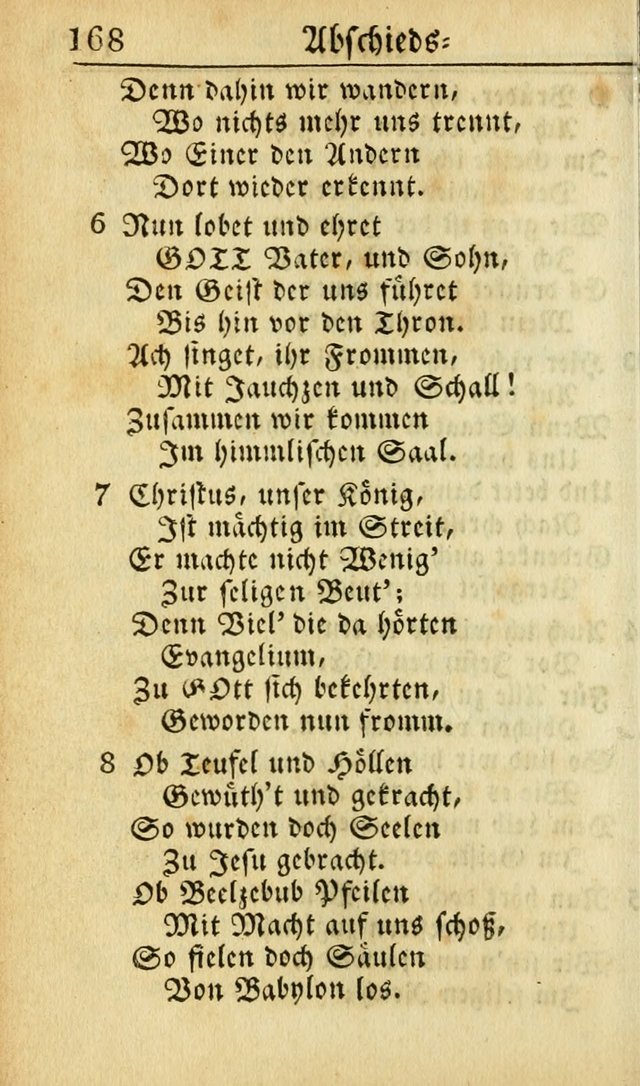 168 Abschieds=
Denn dahin wir wandern,
Wo nichts mehr uns trennt,
Wo Einer den Andern
Dort wieder erkennt.
6 Nun lobet und ehret
GOTT Vater, und Sohn,
Den Geist der uns führet
Bis hin vor den Thron.
Ach singet, ihr Frommen,
Mit Jauchzen und Schall!
Zusammen wir kommen
Im himmlischen Saal.
7 Christus, unser König,
Ist mächtig im Streit,
Er machte nicht Wenig'
Zur seligen Beut';
Denn Viel' die da hörten
Evangelium,
Zu GOtt sich bekehrten,
Geworden nun fromm.
8 Ob Teufel und Höllen
Gewüth't und gekracht,
So wurden doch Seelen
Zu Jesu gebracht.
Ob Beelzebub Pfeilen
Mit Macht auf uns schoß,
So fielen doch Säulen
Von Babylon los.